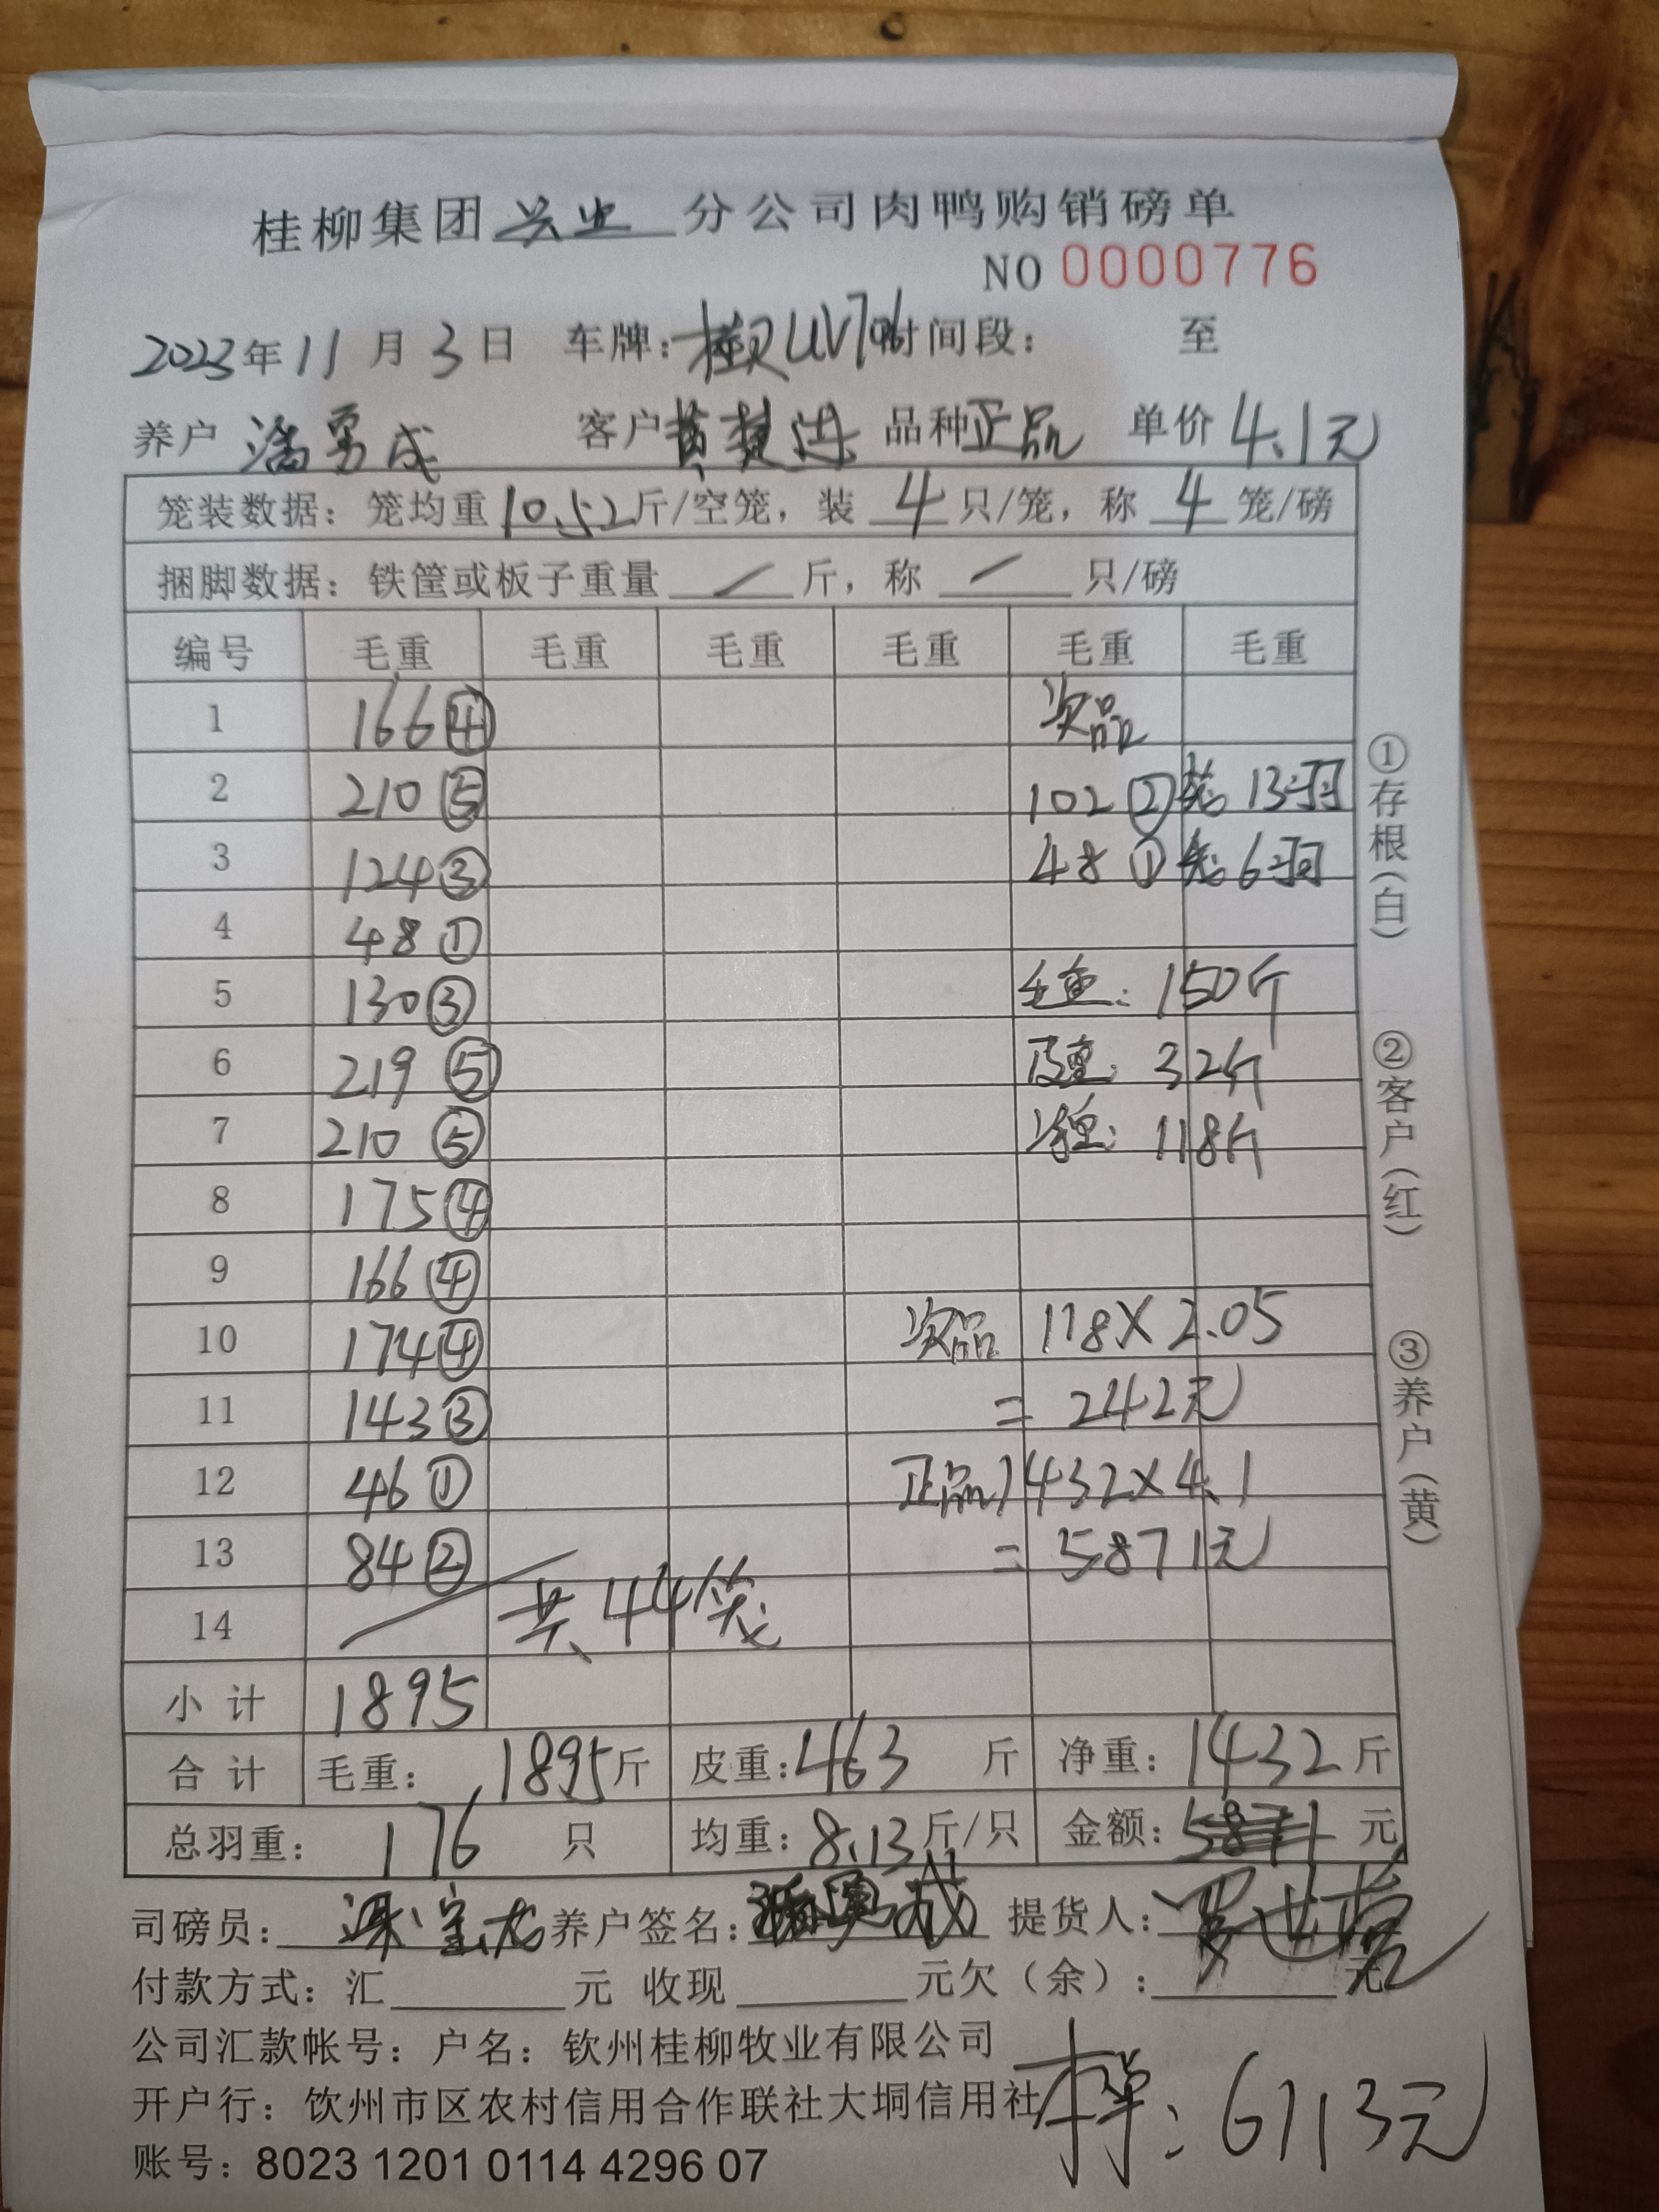 桂柳集团兴业分公司肉鸭购销磅单
NO 0000776
2023年11月3日 车牌:桂 UV706 时间段: 至
养户 潘勇成 客户 品种正品 单价4.1元
笼装数据:笼均重10.52斤/空笼,装4只/笼,称4笼/磅
捆脚数据:铁筐或板子重量 / 斤,称 / 只/磅
编号 毛重 毛重 毛重 毛重 毛重 毛重
1 166④ 次品
2 210⑤ 102②笼 13羽
3 124③ 48①笼 6羽
4 48①
5 130③ 毛重:150斤
6 219⑤ 皮重:32斤
7 210⑤ 净重:118斤
8 175④
9 166④
10 174④ 次品 118×2.05
11 143③ =242元
12 46① 正品1432×4.1
13 84② =5871元
14 共44笼
小计 1895
合计 毛重:1895斤 皮重:463斤 净重:1432斤
总羽重:176只 均重:8.13斤/只 金额:5871元
司磅员: 养户签名: 提货人:
付款方式:汇 元 收现 元欠(余): 元
公司汇款帐号:户名:钦州桂柳牧业有限公司
开户行:饮州市区农村信用合作联社大垌信用社
本单:6113元
账号:8023 1201 0114 4296 07
①存根(白)
②客户(红)
③养户(黄)